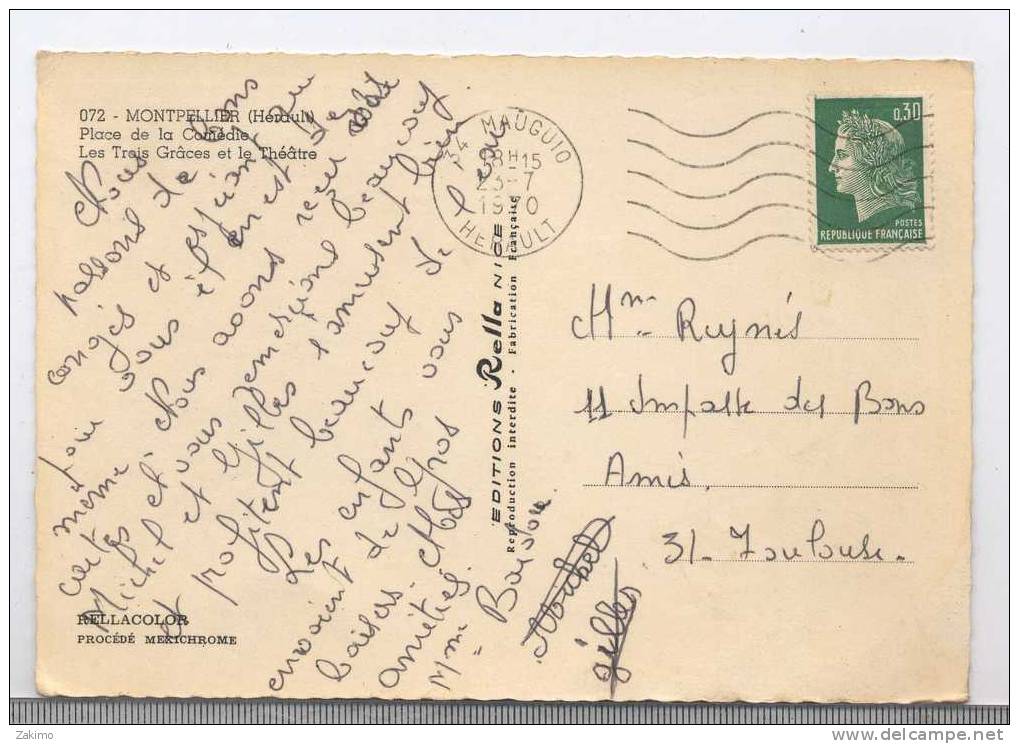 072 - MONTPELLIER (Hérault)
Place de la Comédie
Les Trois Grâces et le Théâtre
34 MAUGUIO
18H15
23-7
1970
HERAULT
0,30
POSTES
REPUBLIQUE FRANÇAISE
Nous
passons de bons
congés et espérons que
pour vous il en est de
même. Nous avons reçu
carte et vous remercions beaucoup
Michel et Gilles s'amusent bien
et profitent beaucoup de l'eau
Les enfants vous
envoient de gros
baisers
amitiés
Mme
Michel
Gilles
EDITIONS Rella NICE
Reproduction interdite - Fabrication Française
Mme Reynés
11 Impasse des Bons
Amis.
31 - Toulouse -
RELLACOLOR
PROCÉDÉ MEXICHROME
Zakimo
http://www.delcampe.net